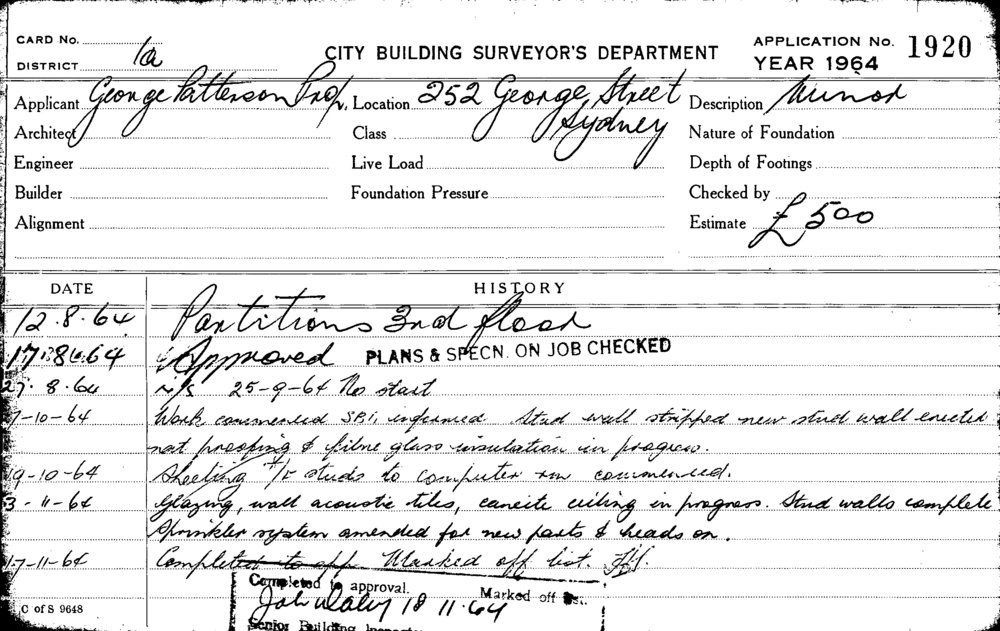 CARD No.
DISTRICT 1a
CITY BUILDING SURVEYOR'S DEPARTMENT
APPLICATION No. 1920
YEAR 1964
Applicant George Patterson Prop. Location 252 George Street Description Minor
Architect Class Sydney Nature of Foundation
Engineer Live Load Depth of Footings
Builder Foundation Pressure Checked by
Alignment Estimate £500
DATE HISTORY
12.8.64 Partitions 3rd floor
17.8.64 Approved PLANS & SPECN. ON JOB CHECKED
27.8.64 N/S 25-9-64 No start
7-10-64 Work commenced SBI, informed Stud wall stripped new stud wall erected
rat proofing & fibre glass insulation in progress.
19-10-64 Sheeting studs to computer rm commenced.
3-11-64 Glazing, wall acoustic tiles, caneite ceiling in progress. Stud walls complete
Sprinkler system amended for new parts & heads on.
17-11-64 Completed to app. Marked off list.
Completed to approval. Marked off list.
John Daley 18 11.64
C of S 9648 Senior Building